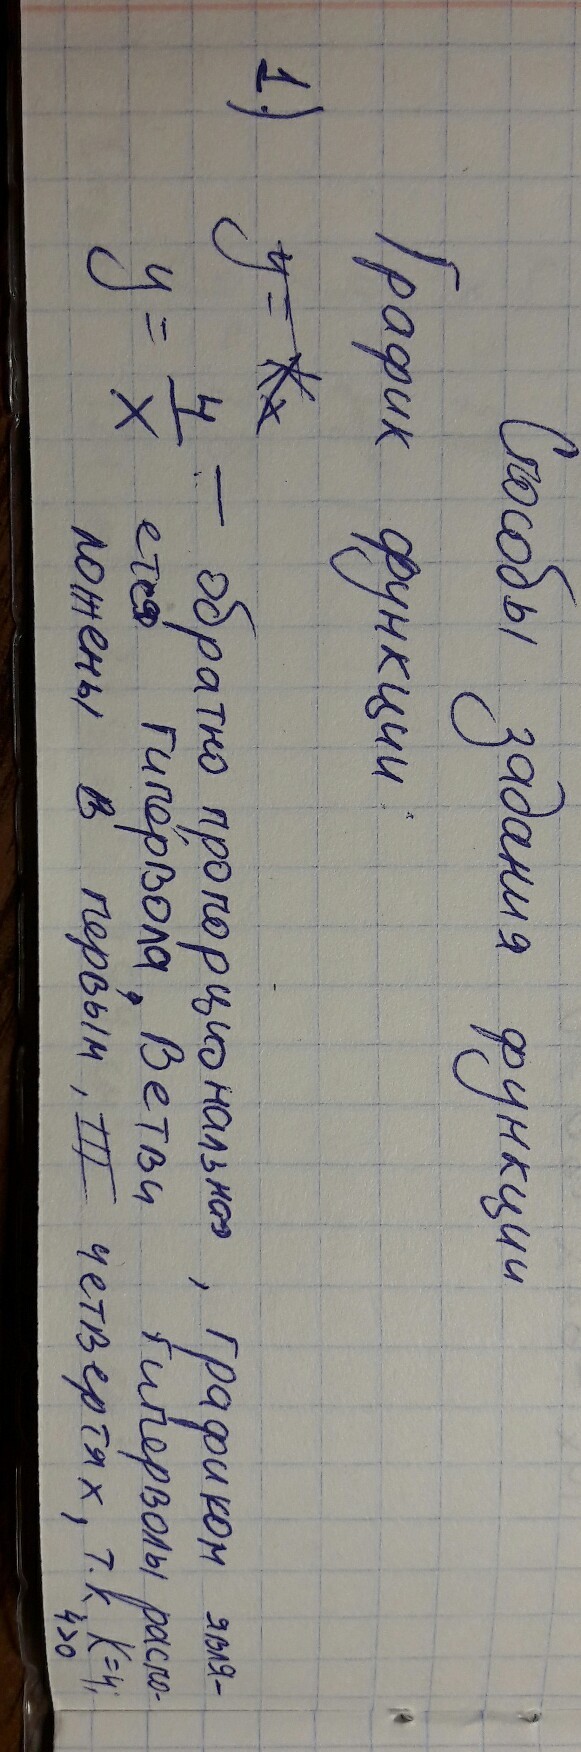 Способы задания функции
График функции.
1) y = kx
y = 4/x — обратно пропорциональная, графиком явля-
ется гипервола, Ветви гиперволы распо-
ложены в первым, III четвертях, т.к. K=4,
4>0